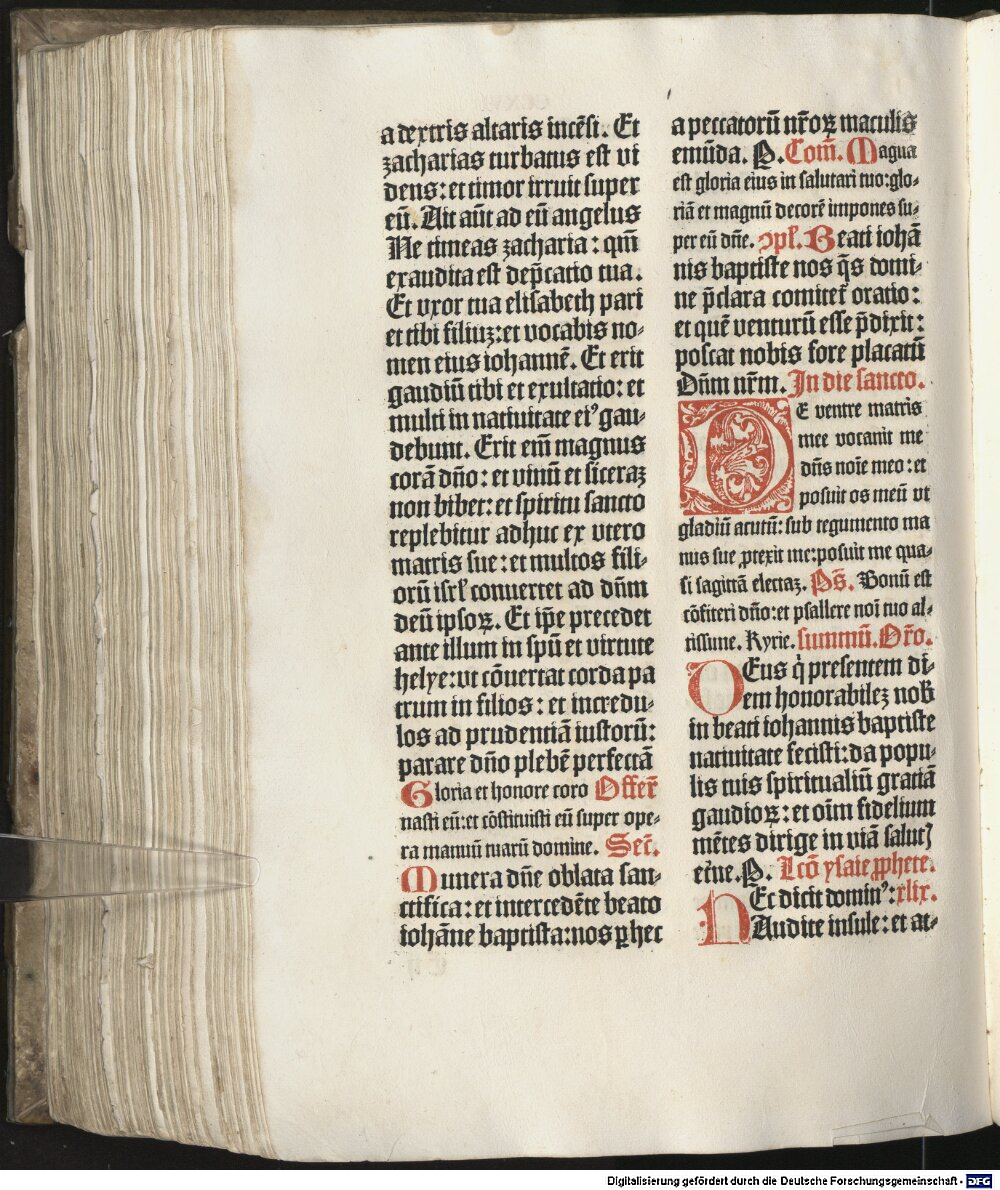 a dextris altaris incēsi. Et
zacharias turbatus est vi
dens: et timor irruit super
eū. Ait aūt ad eū angelus
Ne timeas zacharia: qm̄
exaudita est dep̄catio tua.
Et vxor tua elisabeth pari
et tibi filiuꝫ: et vocabis no⸗
men eius iohannē. Et erit
gaudiū tibi et exultatio: et
multi in natiuitate eiꝰ gau⸗
debunt. Erit em̄ magnus
corā dn̄o: et vinū et siceraꝫ
non bibet: et spiritu sancto
replebitur adhuc ex vtero
matris sue: et multos fili⸗
orū isrl̄ conuertet ad dn̄m
deū ipsoꝝ. Et ip̄e precedet
ante illum in spū et virtute
helye: vt cōuertat corda pa
trum in filios: et incredu⸗
los ad prudentiā iustorū:
parare dn̄o plebē perfectā
Gloria et honore coro Offer̄
nasti eū: et cōstituisti eū super ope⸗
ra manuū tuarū domine. Secr̄.
Munera dn̄e oblata san⸗
ctifica: et intercedēte beato
iohāne baptista: nos ꝑ hec
a peccatorū nr̄oꝝ maculis
emūda. P. Com̄. Magna
est gloria eius in salutari tuo: glo⸗
riā et magnū decorē impones su⸗
per eū dn̄e. Ↄpl̄. Beati iohā
nis baptiste nos q̄s domi⸗
ne p̄clara comitet̄ oratio:
et quē venturū esse p̄dixit:
poscat nobis fore placatū
Dn̄m nr̄m. In die sancto.
DE ventre matris
mee vocauit me
dn̄s noīe meo: et
posuit os meū vt
gladiū acutū: sub tegumento ma
nus sue ꝓtexit me: posuit me qua⸗
si sagittā electaꝫ. Ps̄. Bonū est
cōfiteri dn̄o: et psallere noī tuo al⸗
tissime. Kyrie. summū. Or̄o.
DEus q̇ presentem di⸗
em honorabileꝫ nob̄
in beati iohannis baptiste
natiuitate fecisti: da popu⸗
lis tuis spiritualiū gratiā
gaudioꝝ: et oīm fidelium
mētes dirige in viā salutꝭ
et̄ne. P. Lcō ysaie ꝓphete.
HEc dicit dominꝰ: xlix.
Audite insule: et at⸗
Digitalisierung gefördert durch die Deutsche Forschungsgemeinschaft - DFG